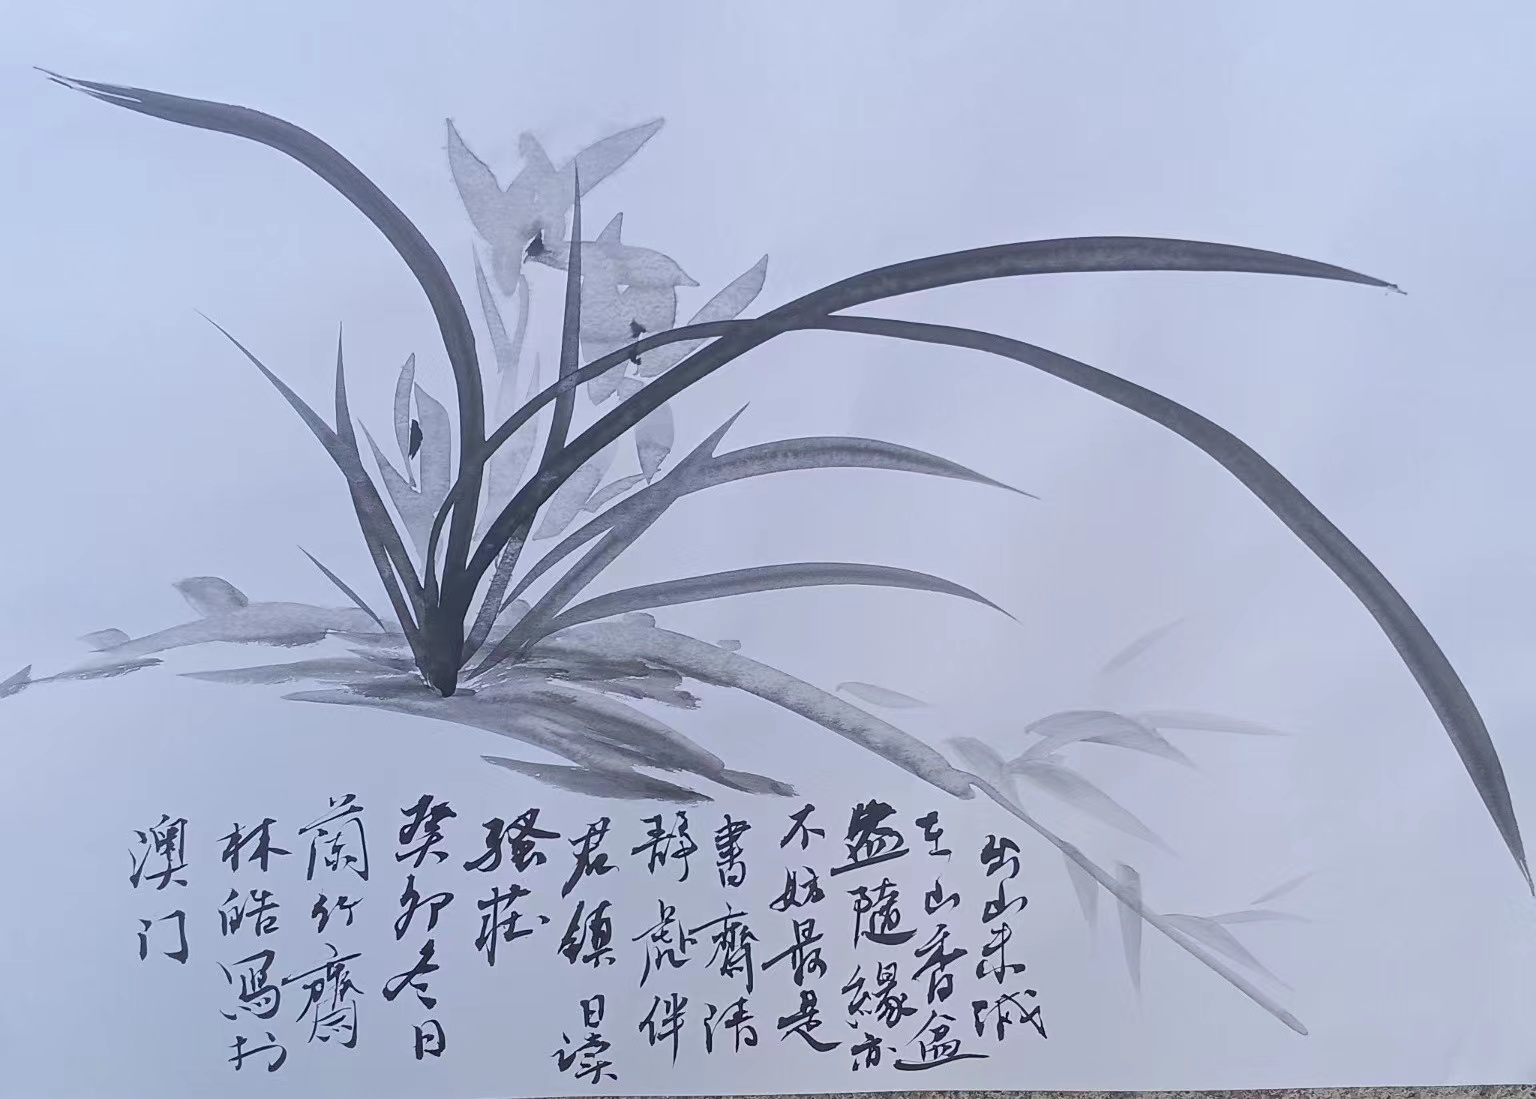 出山未减
在山香盆
盎隨緣亦
不妨最是
書齋清
靜處伴
君鎮日读
騷莊
癸卯冬日
蘭竹齋
林皓寫於
澳门